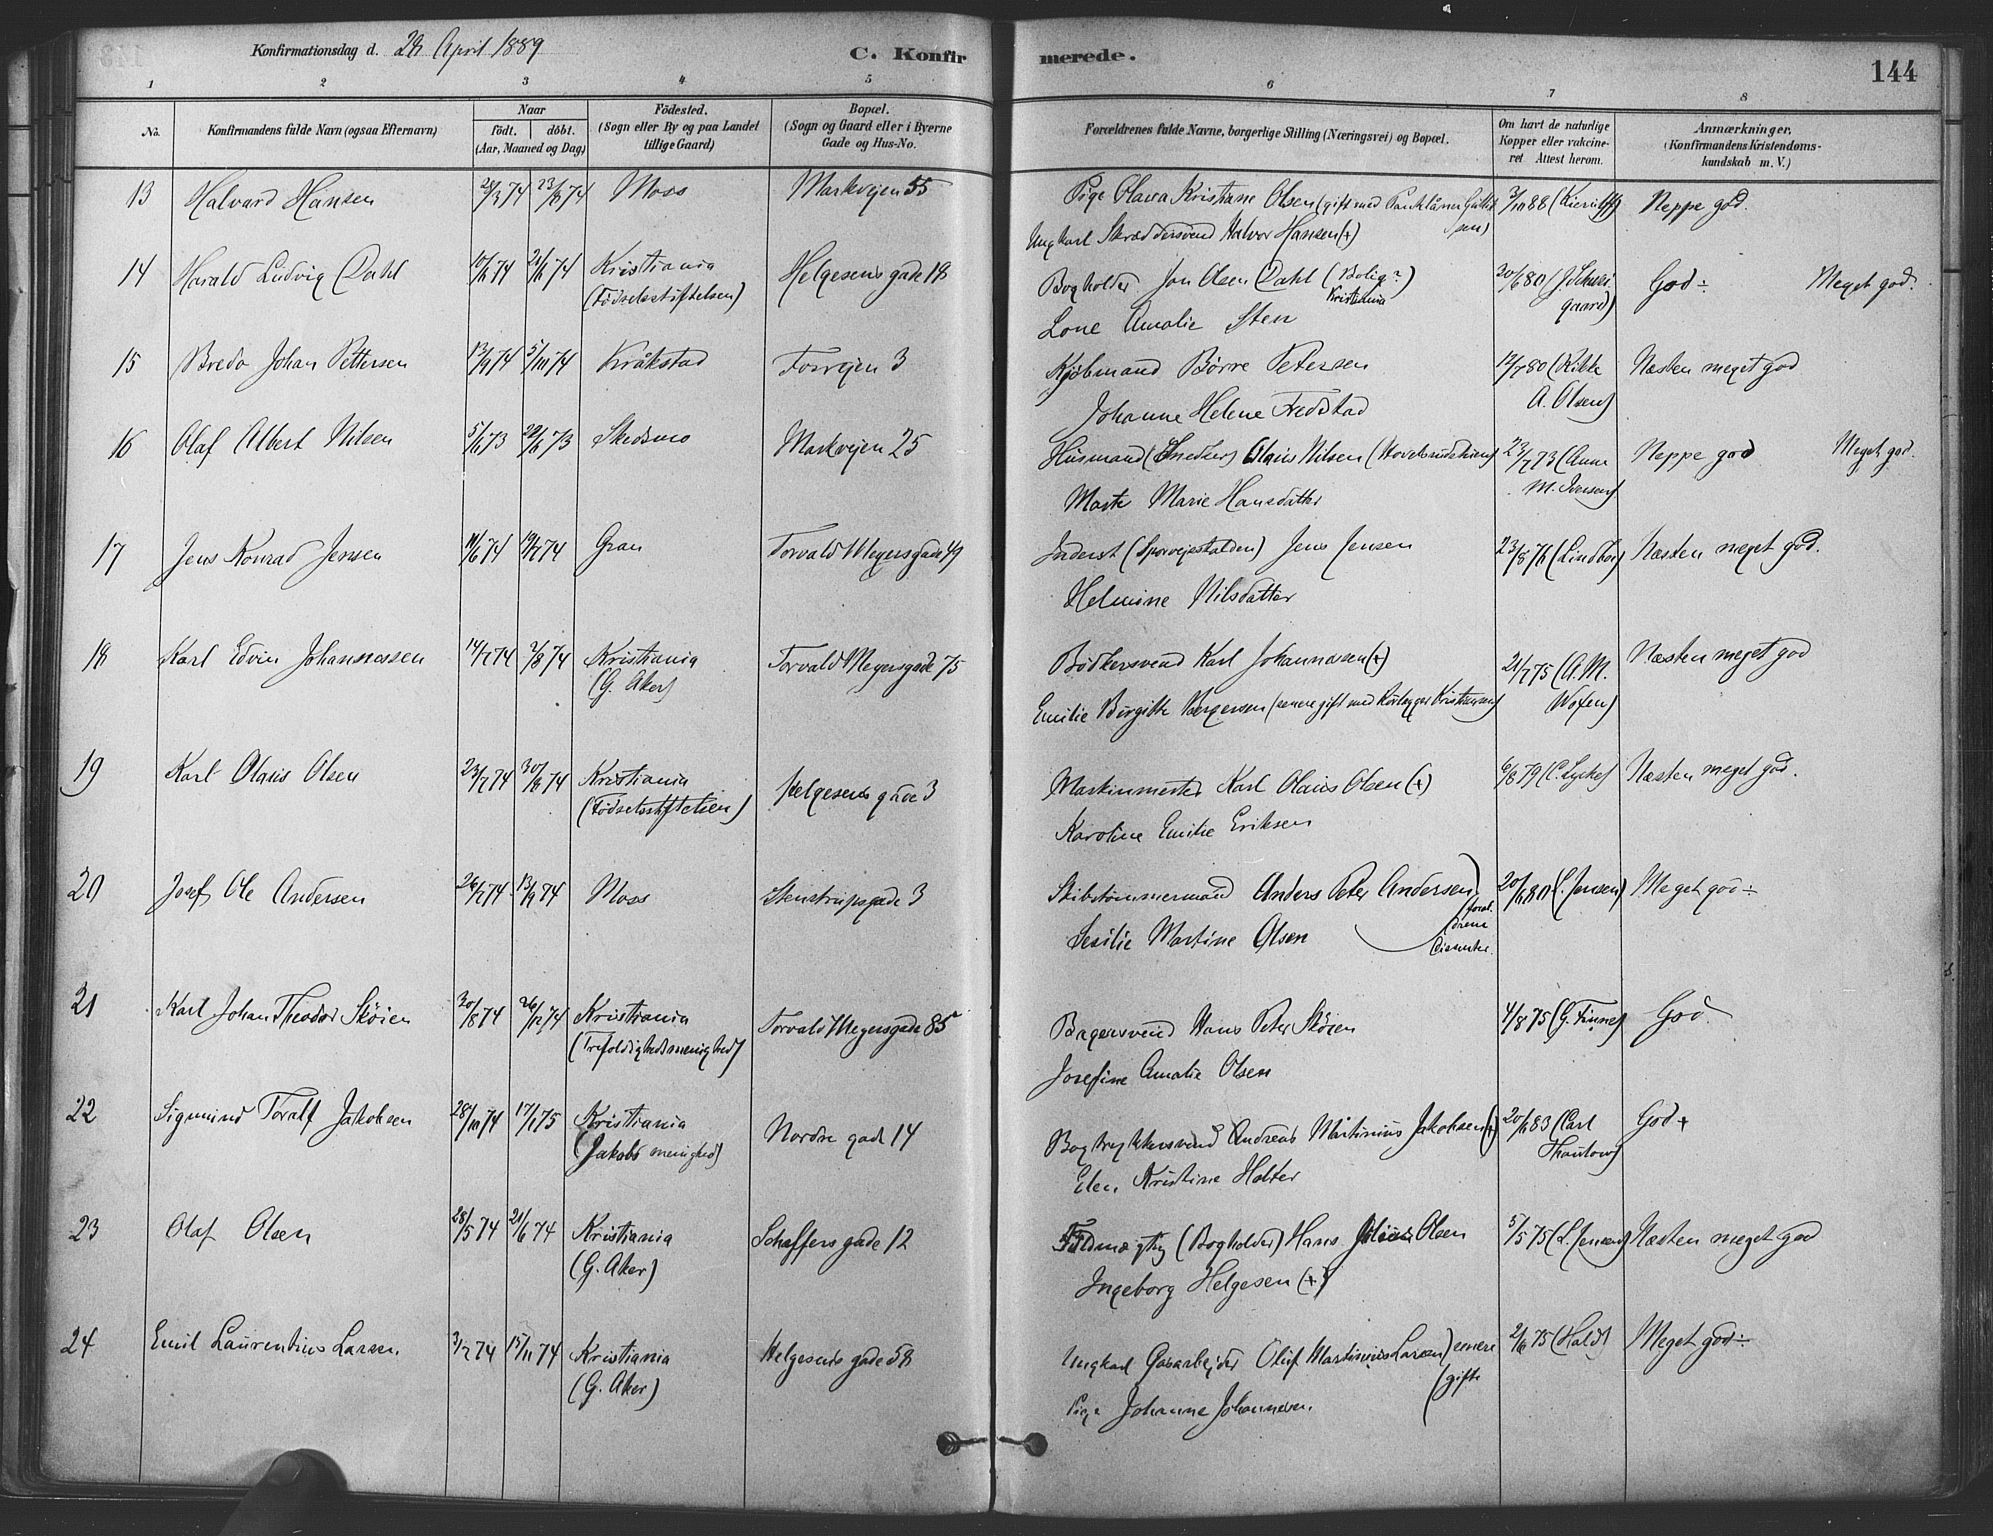 Konfirmationsdag d. 28 April 1889
C. Konfirmerede.
144
1 2 3 4 5 6 7 8
No.
Konfirmandens fulde Navn (ogsaa Efternavn)
Naar
födt. döbt.
(Aar, Maaned og Dag)
Födested.
(Sogn eller By og paa Landet tillige Gaard)
Bopæl.
(Sogn og Gaard eller i Byerne Gade og Hus-No.
Forældrenes fulde Navne, borgerlige Stilling (Næringsvei) og Bopæl.
Om havt de naturlige Kopper eller vakcineret Attest herom.
Anmærkninger.
(Konfirmandens Kristendomskundskab m. V.)
13 Halvard Hansen 74 23/8 74 Moss Markvejen 55 Pige Olava Kristiane Olsen (gift med 3/10 88 (Kierulff) Neppe god.
Ungkarl Skræddersvend Halvor Hansen (+)
14 Harald Ludvig Dahl 74 74 Kristiania Helgesens gade 18 Bogholder Jon Olsen Dahl (Bolig?) 80 God ÷ Meget god.
(Fødselsstiftelsen) Kristiania
Lone Amalie Sten
15 Bredo Johan Pettersen 13/9 74 5/10 74 Kråkstad Torvejen 3 Kjøbmand Børre Petersen 12/7 80 (Rikke A. Olsen) Næsten meget god
Johanne Helene Fredstad
16 Olaf Albert Nilsen 73 73 Skedsmo Markvejen 25 Husmand (Snedker) Olaus Nilsen 23/7 73 (Anne M. Iversen) Neppe god Meget god.
Marte Marie Hansdatter
17 Jens Konrad Jensen 74 19/7 74 Gran Torvald Meyersgade 49 Inderst (Sporvejsstalden) Jens Jensen 23/8 76 (Lindboe) Næsten meget god.
Helmine Nilsdatter
18 Karl Edvin Johannessen 14/7 74 2/8 74 Kristiania Torvald Meyersgade 75 Bødkersvend Karl Johannesen (+) 21/7 75 (A.M. Næsten meget god
(G. Aker)
Emilie Birgitte Børgersen (senere gift med Rørlægger Kristiansen)
19 Karl Olaus Olsen 23/7 74 30/8 74 Kristiania Helgesens gade 3 Maskinmester Karl Olaus Olsen (+) 6/8 79 (C. Lyche) Næsten meget god.
(Fødselsstiftelsen)
Karoline Emilie Eriksen
20 Josef Ole Andersen 26/7 74 13/9 74 Moss Stenstrupsgade 3 Skibstømmermand Anders Peter Andersen 80 (C. Jensen) Meget god ÷
Sesilie Martine Olsen (forældrene Dissentere
21 Karl Johan Theodor Skøien 30/8 74 26/12 74 Kristiania Torvald Meyersgade 85 Bagersvend Hans Peter Skøien 4/8 75 (G. Finne) God.
(Trefoldighedsmenighed)
Josefine Amalie Olsen
22 Sigmund Toralf Jakobsen 28/10 74 17/1 75 Kristiania Nordre gade 14 Bogtrykkersvend Andreas Martinius Jakobsen (+) 83 (Carl Thaulow) God +
(Jakobs menighed)
Elen Kristine Holter
23 Olaf Olsen 28/5 74 21/6 74 Kristiania Schæffers gade 12 Fuldmægtig (Bogholder) Hans Julius Olsen 5/5 75 (L. Jensen) Næsten meget god
(G. Aker)
Ingeborg Helgesen (+)
24 Emil Laurentius Larsen 3/7 74 15/11 74 Kristiania Helgesens gade 58 Ungkarl Gasarbejder Oluf Martinius Larsen) senere (gifte 75 (Hald) Meget god ÷
(G. Aker)
Pige Johanne Johannesen.